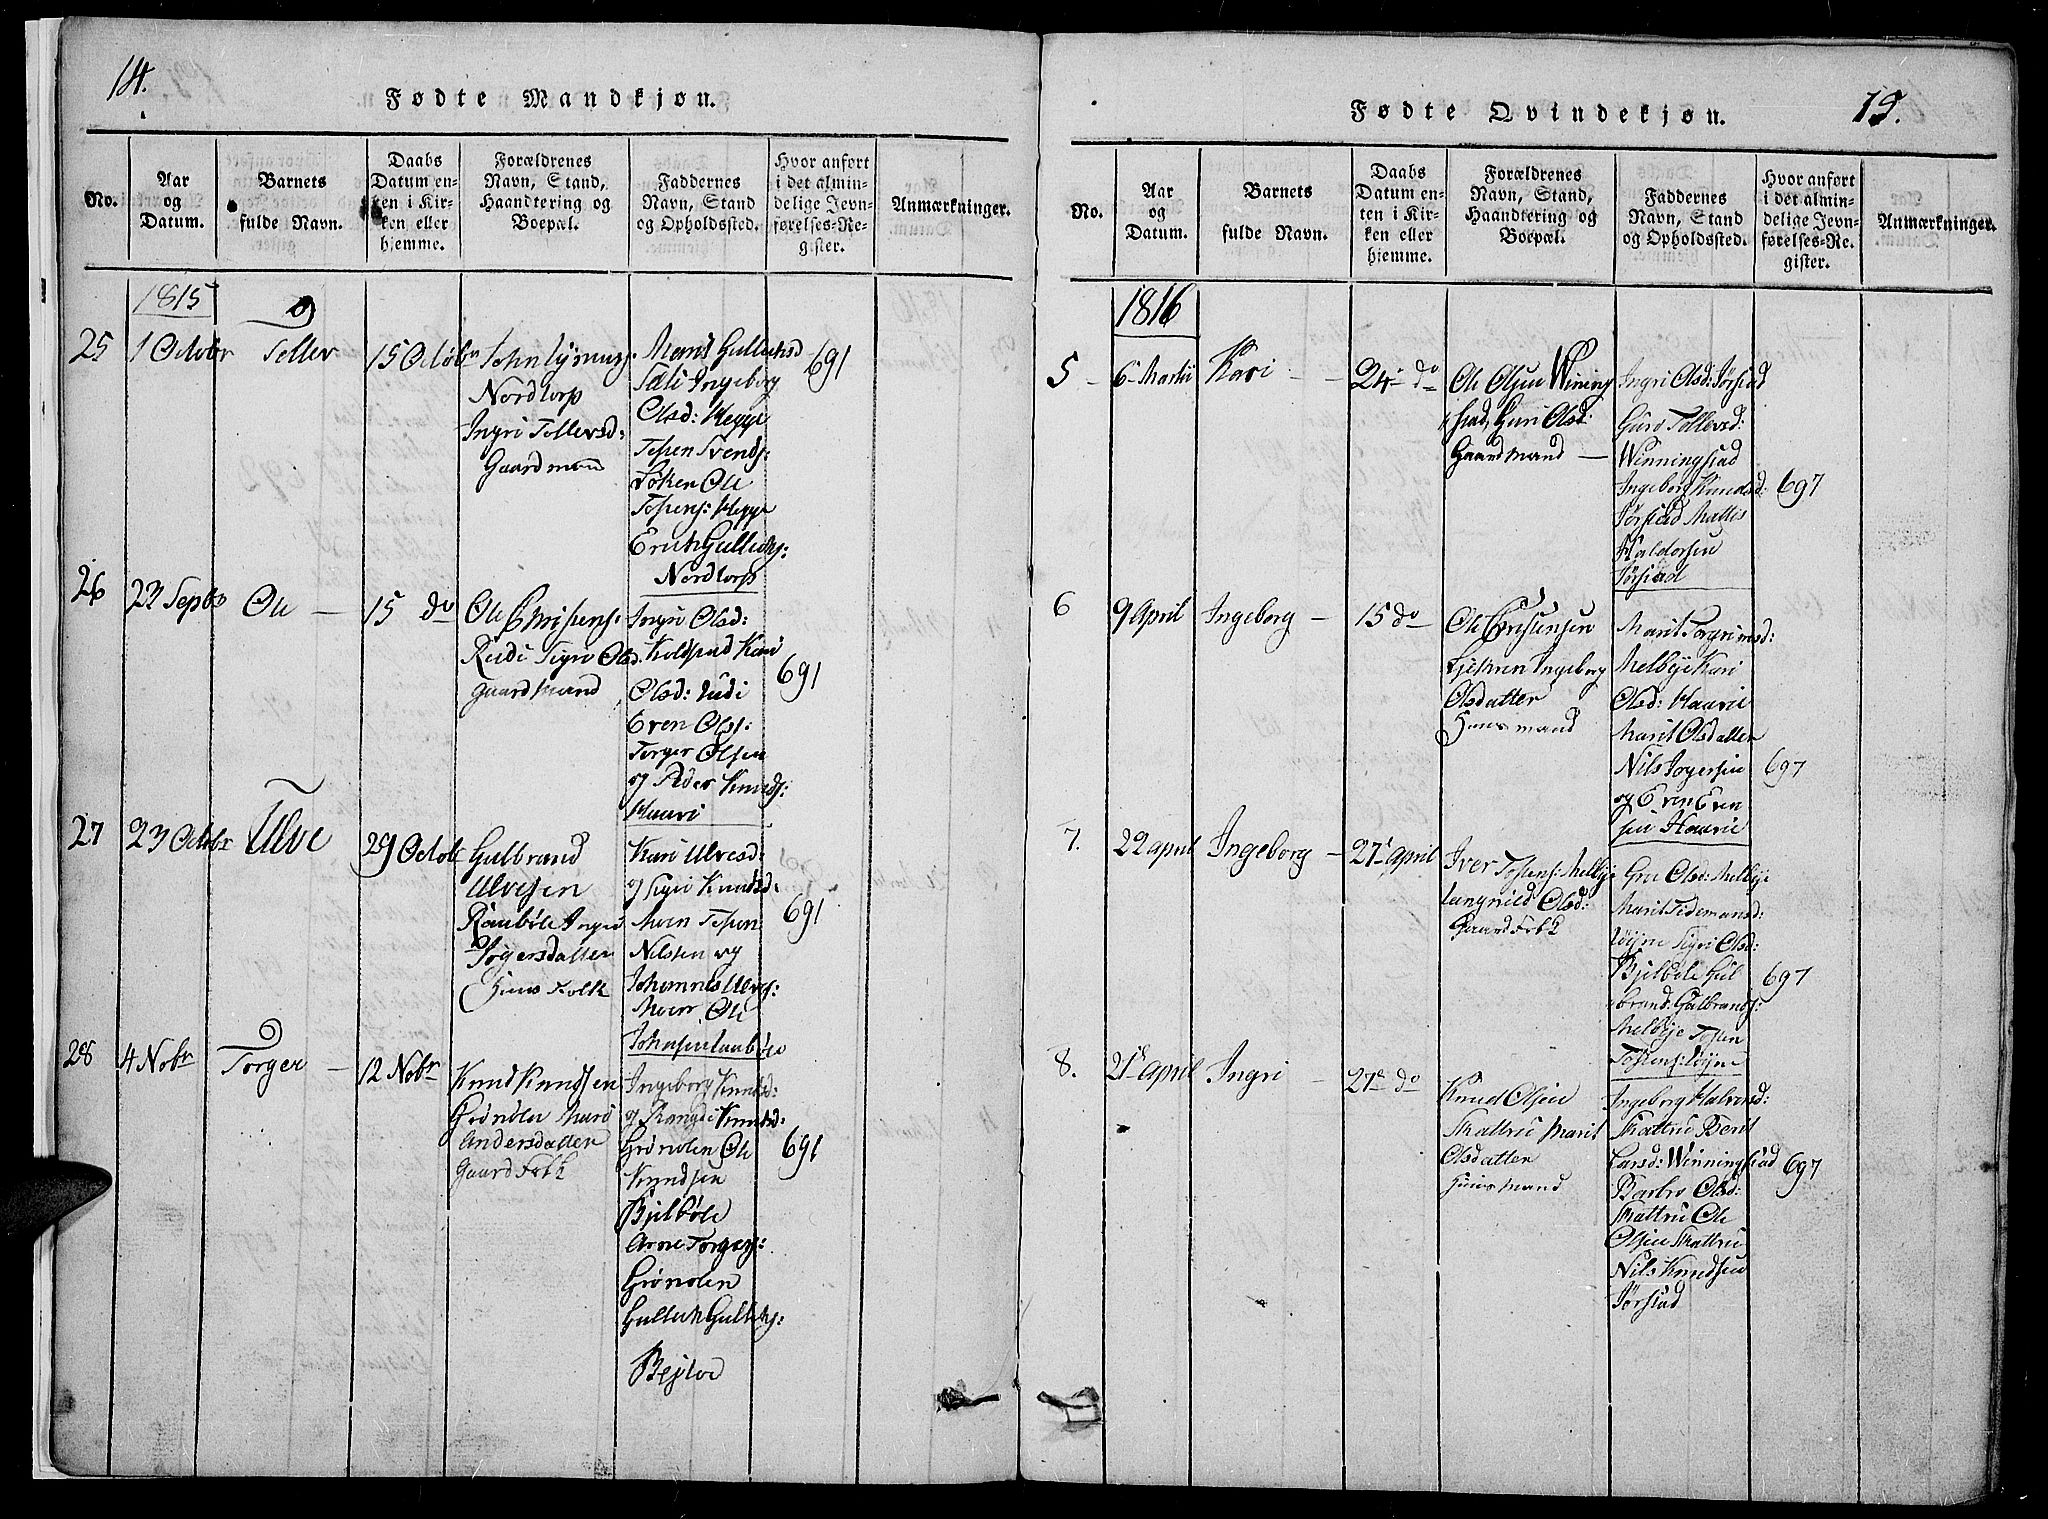 14.
Fødte Mandkjøn.
No.
Aar
og
Datum.
Barnets
fulde Navn.
Daabs
Datum en-
ten i Kir-
ken eller
hjemme.
Forældrenes
Navn, Stand,
Haandtering og
Boepæl.
Faddernes
Navn, Stand
og Opholdssted.
Hvor anført
i det almin-
delige Jevn-
førelses-Re-
gister.
Anmærkninger.
1815
25
1 Octobr
Toller
15 Octobr
Nordtorp
Ingri Tollersd:
Gaardmand
Marit Gulliksd
Sæli Ingeborg
Olsd: Hegge
Tosten Svends:
Løken Ole
Tostens: Hegge
Erik Gulliks:
Nordtorp
691
26
23 Septbr
Ole —
15 do
Ole Christens:
Rudi Sigri Olsd.
Gaardmand
Ingri Olsd:
Kolstad Kari
Olsd: Rudi
Even Ols:
Torger Olsen
og Peder Knuds:
Haavi
691
27
23 Octobr
Ulve
29 Octob
Gulbrand
Ulvesen
Raubøle Ingri
Torgersdatter
Huus Folk
Kari Ulvesd:
og Sigri Knudsd:
Moen Tosten
Nilsen og
Johannes Ulves:
Moen Ole
Johnsen Raubøle
691
28
4 Nobr
Torger —
12 Nobr
Knud Knudsen
Grønolen Marit
Andersdatter
Gaard Folk
Ingeborg Knudsd:
og Rangdi Knudsd:
Grønolen Ole
Knudsen
Bjelbøle
Arne Torgers:
Grønolen
Gullik Gulliks:
Bejtoe
691
15.
Fødte Qvindekjøn.
No.
Aar
og
Datum.
Barnets
fulde Navn.
Daabs
Datum en-
ten i Kir-
ken eller
hjemme.
Forældrenes
Navn, Stand,
Haandtering og
Boepæl.
Faddernes
Navn, Stand
og Opholdssted.
Hvor anført
i det almin-
delige Jevn-
førelses-Re-
gister.
Anmærkninger.
1816
5 –
6 Martii
Kari — —
24 do
Ole Olsen Wining
stad, Guri Olsd:
Gaardmand —
Ingri Olsd: Jørstad
Guro Tollevsd:
Winningstad
Ingeborg Knudsd:
Jørstad Mattis
Haldorsen
Jørstad
697
6
9 April
Ingeborg —
15 do
Ole
Ingeborg
Olsdatter
Huusmand
Marit Torgrimsd:
Melbye Kari
Olsd: Haavie
Marit Olsdatter
Nils Torgersen
og Even Even
sen Haavie
697
7.
22 april
Ingeborg —
27 april
Iver Tostens: Melbye
Langnild Olsd:
Gaard Folk
Gro Olsd: Melbye
Marit Tidemansd:
Løyne Sigri Olsd:
Bjelbøle Gul
brand: Gulbrands:
Melbye Tosten
Tostens: Løyne
697
8.
21 april
Ingri —
27 do
Knud Olsen
Skattru Marit
Olsdatter
Huusmand
Ingeborg Halvorsd:
Skattru Berit
Larsd: Winningstad
Barbro Olsd:
Skattru Ole
Olsen Skattru
Nils Knudsen
Jørstad
697